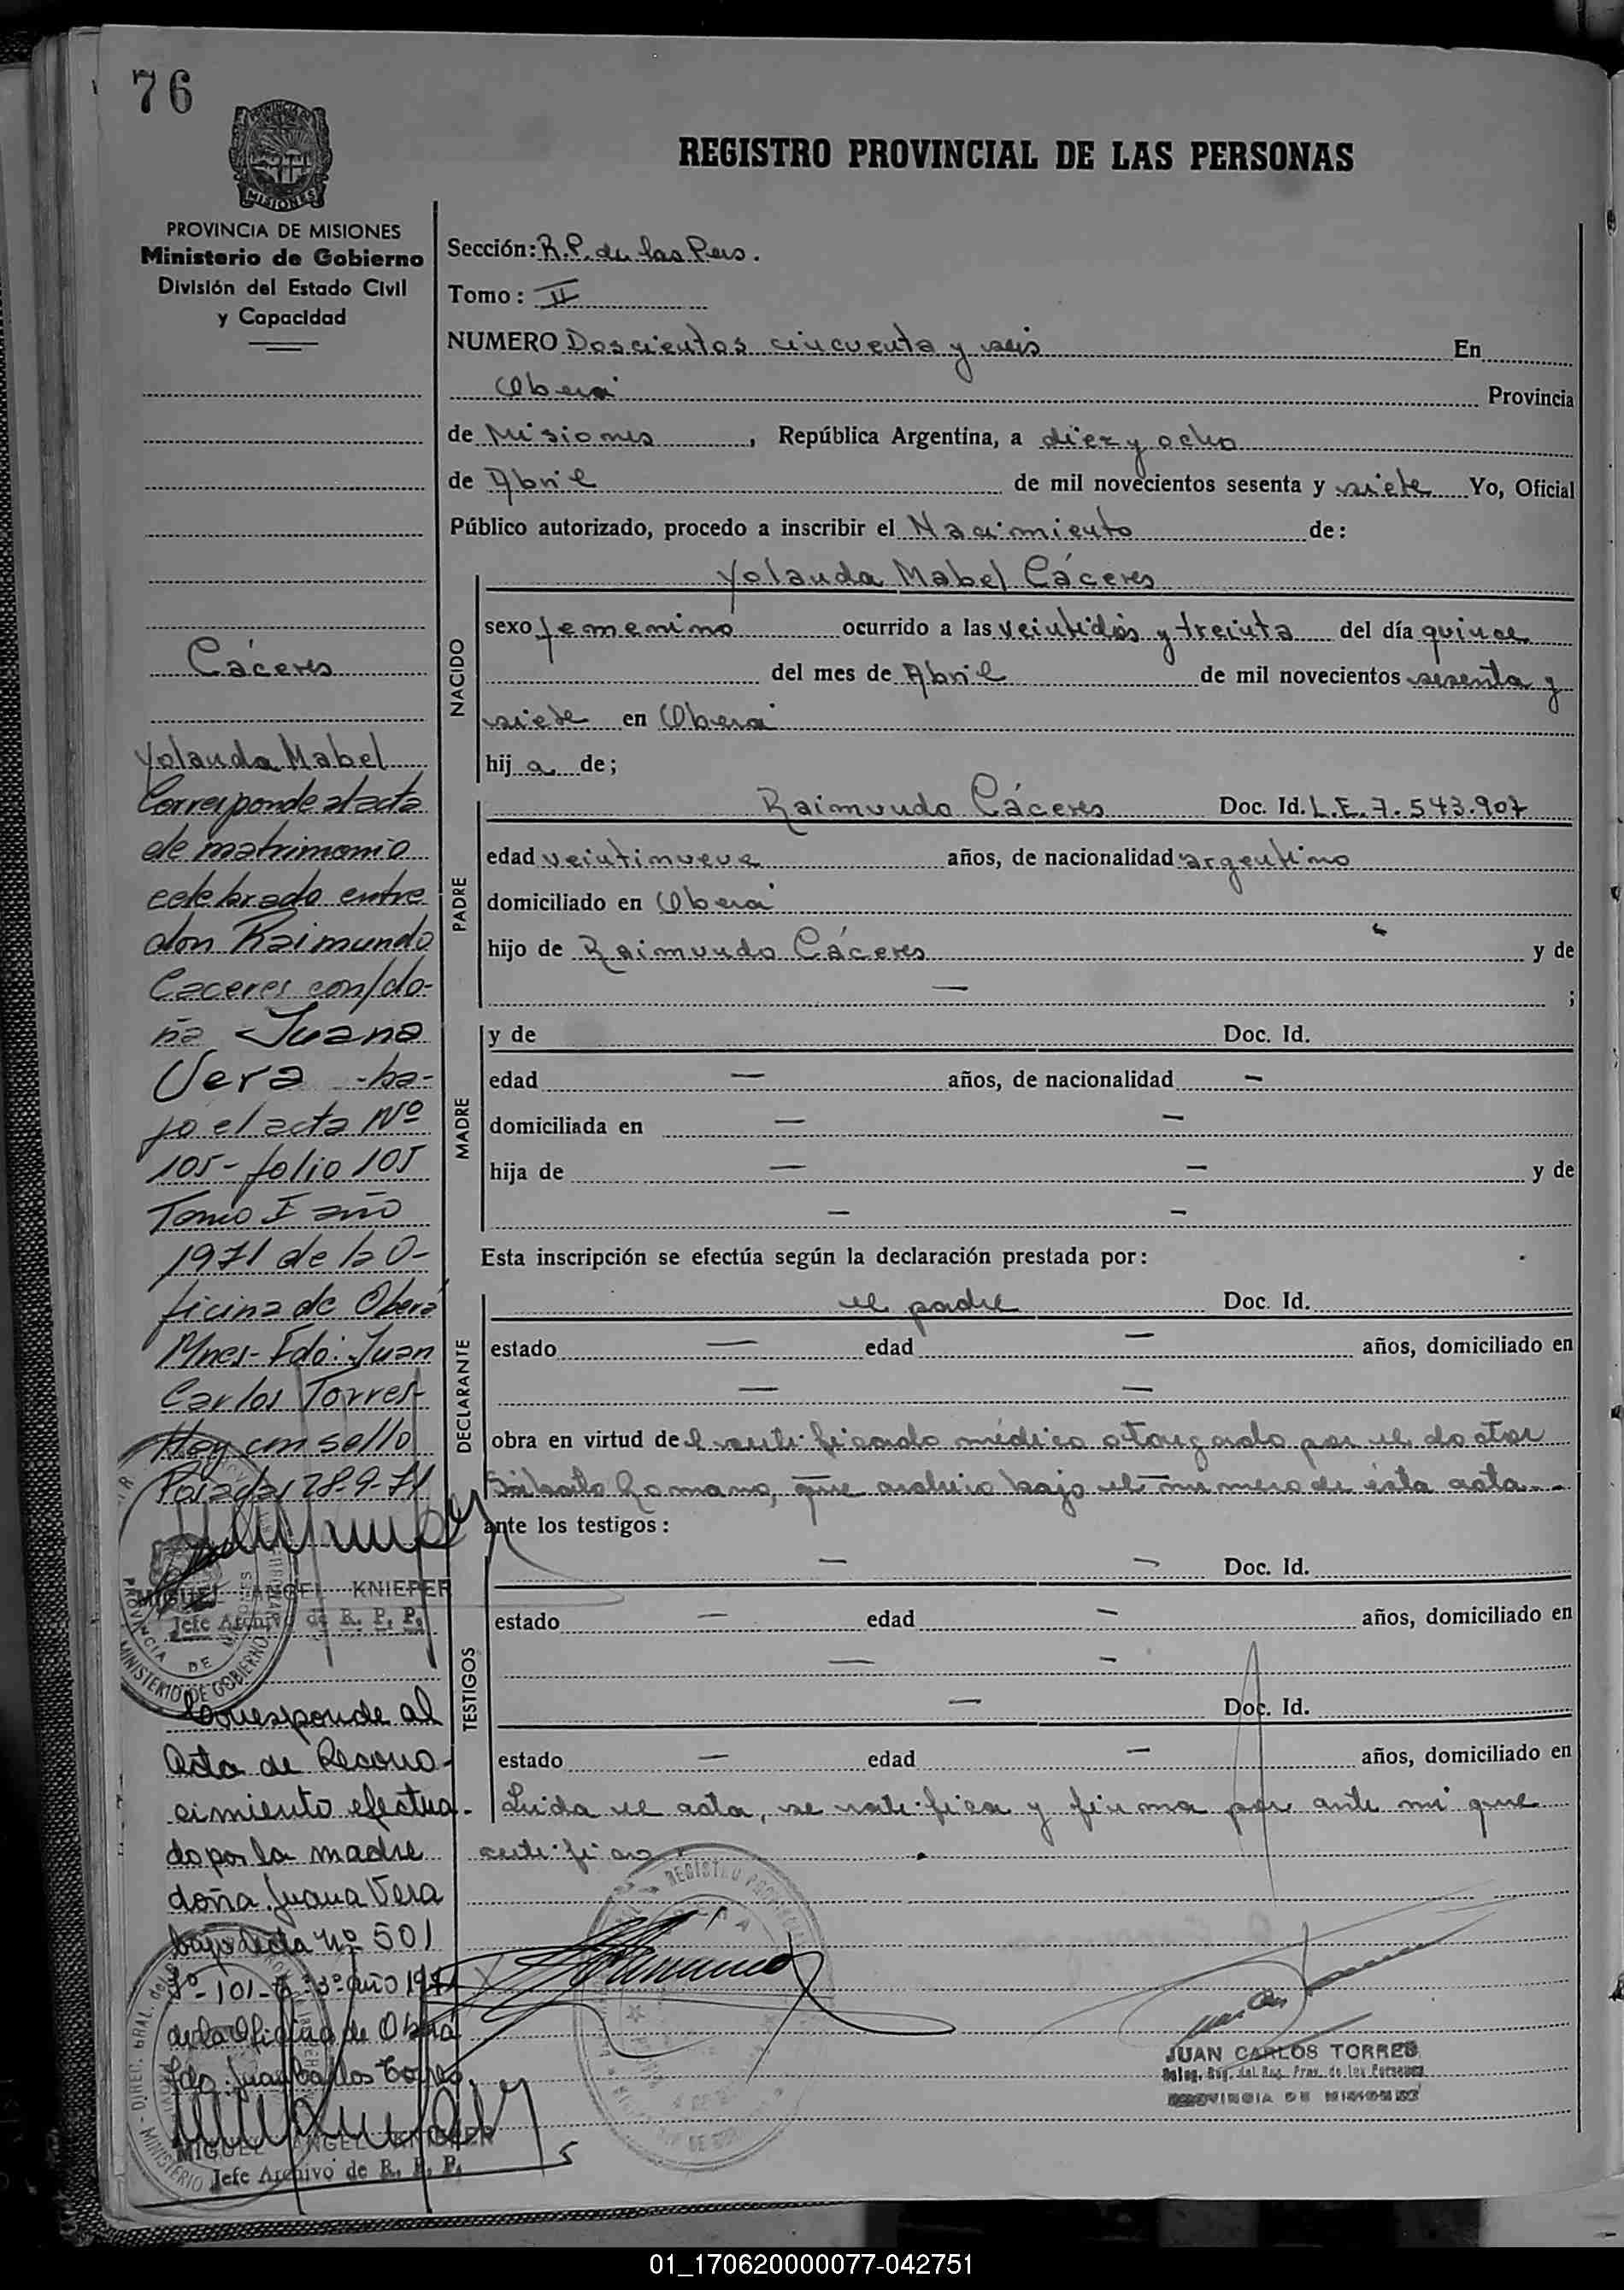 76
PROVINCIA DE MISIONES
Ministerio de Gobierno
División del Estado Civil
y Capacidad
REGISTRO PROVINCIAL DE LAS PERSONAS
Sección: R.P. de las Pers.
Tomo: II
NUMERO Doscientos cincuenta y seis En
Oberá Provincia
de Misiones, República Argentina, a diez y ocho
de Abril de mil novecientos sesenta y siete Yo, Oficial
Público autorizado, procedo a inscribir el Nacimiento de:
NACIDO
Yolanda Mabel Cáceres
sexo femenino ocurrido a las veintidós y treinta del día quince
del mes de Abril de mil novecientos sesenta y
siete en Oberá
hij a de;
PADRE
Raimundo Cáceres Doc. Id. L.E. 7.543.907
edad veintinueve años, de nacionalidad argentino
domiciliado en Oberá
hijo de Raimundo Cáceres y de
— ;
MADRE
y de Doc. Id.
edad — años, de nacionalidad —
domiciliada en — —
hija de — — y de
— —
Esta inscripción se efectúa según la declaración prestada por:
DECLARANTE
el padre Doc. Id.
estado — edad — años, domiciliado en
— —
obra en virtud del certificado médico otorgado por el doctor
Romano, que archivo bajo el número de ésta acta
ante los testigos:
TESTIGOS
— — Doc. Id.
estado — edad — años, domiciliado en
— —
— Doc. Id.
estado — edad — años, domiciliado en
Leida el acta, se ratifica y firma por ante mí que
certifico
JUAN CARLOS TORRES
Deleg. Reg. del Reg. Prov. de las Personas
PROVINCIA DE MISIONES
Cáceres
Yolanda Mabel
Corresponde al acta
de matrimonio
celebrado entre
don Raimundo
Caceres con/do-
ña Juana
Vera -ba-
jo el acta Nº
105- folio 105
Tomo I año
1971 de la O-
ficina de Oberá
Mnes- Fdo: Juan
Carlos Torres-
Hay un sello
Posadas 28-9-71
MIGUEL ANGEL KNIEPER
Jefe Archivo de R. P. P.
PROVINCIA DE
MINISTERIO DE GOBIERNO
Corresponde al
Acta de Recono-
cimiento efectua-
do por la madre
doña Juana Vera
bajo acta Nº 501
Fº- 101-Tº 3º año
de la Oficina de Oberá
Fdo: Juan Carlos Torres.
MIGUEL ANGEL KNIEPER
Jefe Archivo de R. P. P.
01_170620000077-042751